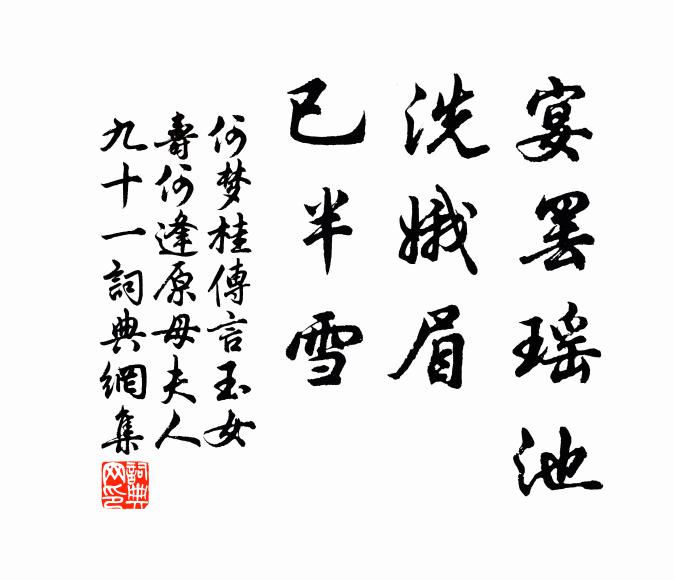 宴罢瑶池
洗娥眉
已半雪
何梦桂傳言玉女
壽何逢原母夫人
九十一詞典網集
詞典网印